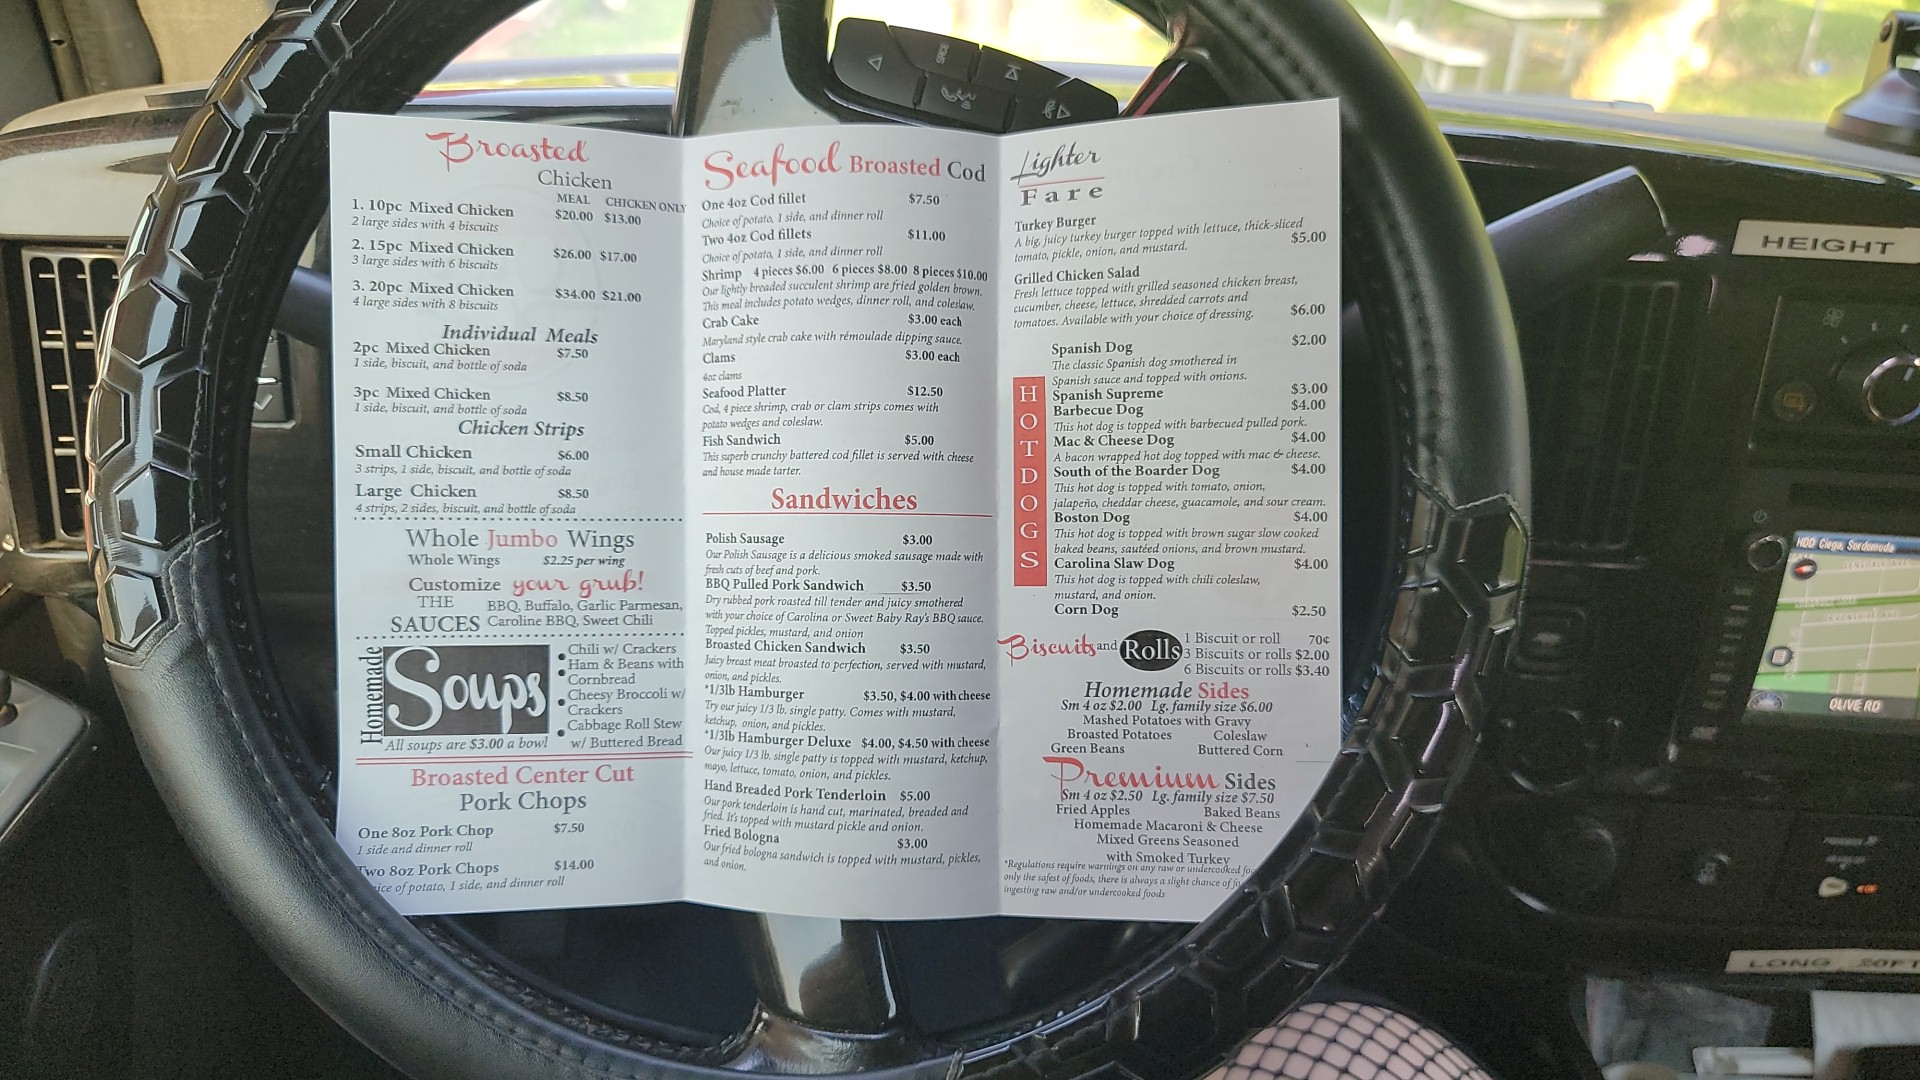 Broasted
Chicken
MEAL CHICKEN ONLY
1. 10pc Mixed Chicken $20.00 $13.00
2 large sides with 4 biscuits
2. 15pc Mixed Chicken $26.00 $17.00
3 large sides with 6 biscuits
3. 20pc Mixed Chicken $34.00 $21.00
4 large sides with 8 biscuits
Individual Meals
2pc Mixed Chicken $7.50
1 side, biscuit, and bottle of soda
3pc Mixed Chicken $8.50
1 side, biscuit, and bottle of soda
Chicken Strips
Small Chicken $6.00
3 strips, 1 side, biscuit, and bottle of soda
Large Chicken $8.50
4 strips, 2 sides, biscuit, and bottle of soda
Whole Jumbo Wings
Whole Wings $2.25 per wing
Customize your grub!
THE SAUCES
BBQ, Buffalo, Garlic Parmesan,
Caroline BBQ, Sweet Chili
Homemade Soups
Chili w/ Crackers
Ham & Beans with
Cornbread
Cheesy Broccoli w/
Crackers
Cabbage Roll Stew
w/ Buttered Bread
All soups are $3.00 a bowl
Broasted Center Cut
Pork Chops
One 8oz Pork Chop $7.50
1 side and dinner roll
Two 8oz Pork Chops $14.00
ice of potato, 1 side, and dinner roll
Seafood Broasted Cod
One 4oz Cod fillet $7.50
Choice of potato, 1 side, and dinner roll
Two 4oz Cod fillets $11.00
Choice of potato, 1 side, and dinner roll
Shrimp 4 pieces $6.00 6 pieces $8.00 8 pieces $10.00
Our lightly breaded succulent shrimp are fried golden brown.
This meal includes potato wedges, dinner roll, and coleslaw.
Crab Cake $3.00 each
Maryland style crab cake with rémoulade dipping sauce.
Clams $3.00 each
4oz clams
Seafood Platter $12.50
Cod, 4 piece shrimp, crab or clam strips comes with
potato wedges and coleslaw.
Fish Sandwich $5.00
This superb crunchy battered cod fillet is served with cheese
and house made tarter.
Sandwiches
Polish Sausage $3.00
Our Polish Sausage is a delicious smoked sausage made with
fresh cuts of beef and pork.
BBQ Pulled Pork Sandwich $3.50
Dry rubbed pork roasted till tender and juicy smothered
with your choice of Carolina or Sweet Baby Ray's BBQ sauce.
Topped pickles, mustard, and onion
Broasted Chicken Sandwich $3.50
Juicy breast meat broasted to perfection, served with mustard,
onion, and pickles.
*1/3lb Hamburger $3.50, $4.00 with cheese
Try our juicy 1/3 lb. single patty. Comes with mustard,
ketchup, onion, and pickles.
*1/3lb Hamburger Deluxe $4.00, $4.50 with cheese
Our juicy 1/3 lb. single patty is topped with mustard, ketchup,
mayo, lettuce, tomato, onion, and pickles.
Hand Breaded Pork Tenderloin $5.00
Our pork tenderloin is hand cut, marinated, breaded and
fried. It's topped with mustard pickle and onion.
Fried Bologna $3.00
Our fried bologna sandwich is topped with mustard, pickles,
and onion.
Lighter
Fare
Turkey Burger
A big, juicy turkey burger topped with lettuce, thick-sliced
tomato, pickle, onion, and mustard. $5.00
Grilled Chicken Salad
Fresh lettuce topped with grilled seasoned chicken breast,
cucumber, cheese, lettuce, shredded carrots and
tomatoes. Available with your choice of dressing. $6.00
HOT DOGS
Spanish Dog $2.00
The classic Spanish dog smothered in
Spanish sauce and topped with onions.
Spanish Supreme $3.00
Barbecue Dog $4.00
This hot dog is topped with barbecued pulled pork.
Mac & Cheese Dog $4.00
A bacon wrapped hot dog topped with mac & cheese.
South of the Boarder Dog $4.00
This hot dog is topped with tomato, onion,
jalapeño, cheddar cheese, guacamole, and sour cream.
Boston Dog $4.00
This hot dog is topped with brown sugar slow cooked
baked beans, sautéed onions, and brown mustard.
Carolina Slaw Dog $4.00
This hot dog is topped with chili coleslaw,
mustard, and onion.
Corn Dog $2.50
Biscuits and Rolls
1 Biscuit or roll 70¢
3 Biscuits or rolls $2.00
6 Biscuits or rolls $3.40
Homemade Sides
Sm 4 oz $2.00 Lg. family size $6.00
Mashed Potatoes with Gravy
Broasted Potatoes Coleslaw
Green Beans Buttered Corn
Premium Sides
Sm 4 oz $2.50 Lg. family size $7.50
Fried Apples Baked Beans
Homemade Macaroni & Cheese
Mixed Greens Seasoned
with Smoked Turkey
*Regulations require warnings on any raw or undercooked
only the safest of foods, there is always a slight chance of
ingesting raw and/or undercooked foods
HEIGHT
HDD Ciega, Sordomuda
OLIVE RD
LONG